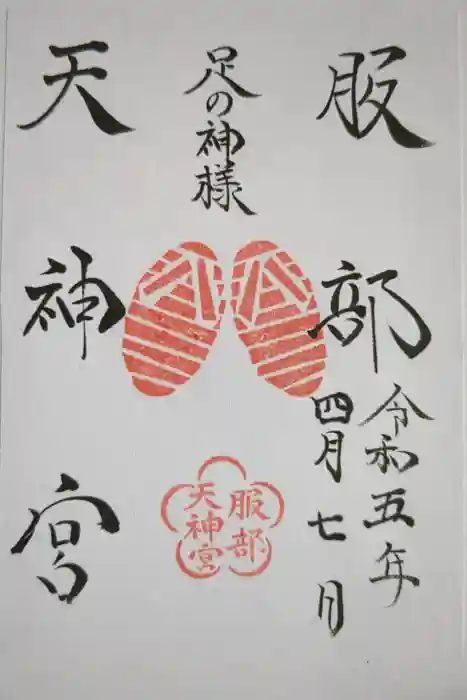 服部
令和五年
四月七月
足の神様
服部
天神宮
天神宮